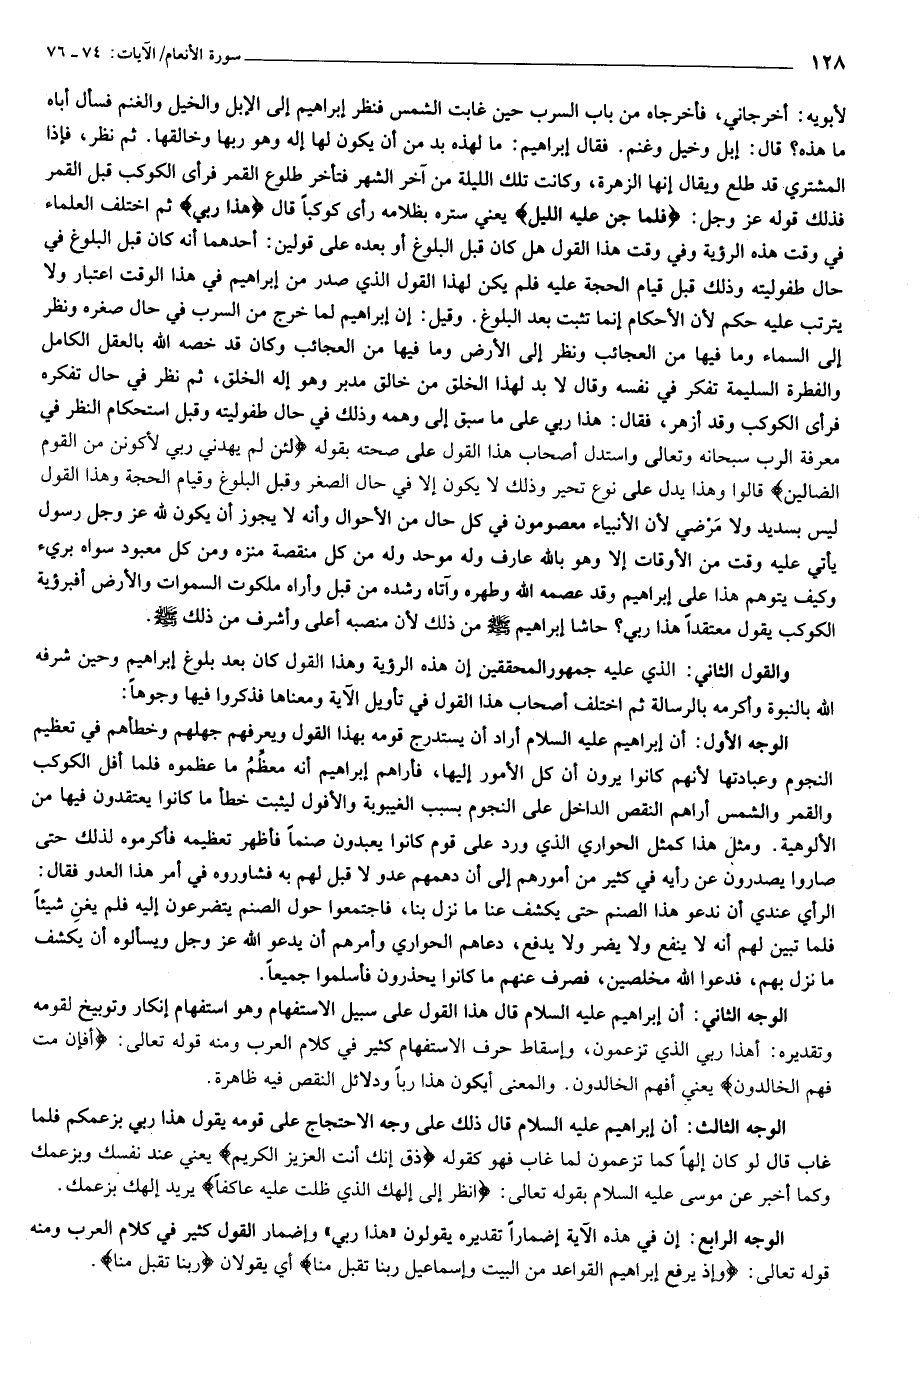 ١٢٨ سورة الأنعام/ الآيات: ٧٤ ـ ٧٦
لأبويه: أخرجاني، فأخرجاه من باب السرب حين غابت الشمس فنظر إبراهيم إلى الإبل والخيل والغنم فسأل أباه
ما هذه؟ قال: إبل وخيل وغنم. فقال إبراهيم: ما لهذه بد من أن يكون لها إله وهو ربها وخالقها. ثم نظر، فإذا
المشتري قد طلع ويقال إنها الزهرة، وكانت تلك الليلة من آخر الشهر فتأخر طلوع القمر فرأى الكوكب قبل القمر
فذلك قوله عز وجل: ﴿فلما جن عليه الليل﴾ يعني ستره بظلامه رأى كوكباً قال ﴿هذا ربي﴾ ثم اختلف العلماء
في وقت هذه الرؤية وفي وقت هذا القول هل كان قبل البلوغ أو بعده على قولين: أحدهما أنه كان قبل البلوغ في
حال طفوليته وذلك قبل قيام الحجة عليه فلم يكن لهذا القول الذي صدر من إبراهيم في هذا الوقت اعتبار ولا
يترتب عليه حكم لأن الأحكام إنما تثبت بعد البلوغ. وقيل: إن إبراهيم لما خرج من السرب في حال صغره ونظر
إلى السماء وما فيها من العجائب ونظر إلى الأرض وما فيها من العجائب وكان قد خصه الله بالعقل الكامل
والفطرة السليمة تفكر في نفسه وقال لا بد لهذا الخلق من خالق مدبر وهو إله الخلق، ثم نظر في حال تفكره
فرأى الكوكب وقد أزهر، فقال: هذا ربي على ما سبق إلى وهمه وذلك في حال طفوليته وقبل استحكام النظر في
معرفة الرب سبحانه وتعالى واستدل أصحاب هذا القول على صحته بقوله ﴿لئن لم يهدني ربي لأكونن من القوم
الضالين﴾ قالوا وهذا يدل على نوع تحير وذلك لا يكون إلا في حال الصغر وقبل البلوغ وقيام الحجة وهذا القول
ليس بسديد ولا مَرْضي لأن الأنبياء معصومون في كل حال من الأحوال وأنه لا يجوز أن يكون لله عز وجل رسول
يأتي عليه وقت من الأوقات إلا وهو بالله عارف وله موحد وله من كل منقصة منزه ومن كل معبود سواه بريء
وكيف يتوهم هذا على إبراهيم وقد عصمه الله وطهره وآتاه رشده من قبل وأراه ملكوت السموات والأرض أفبرؤية
الكوكب يقول معتقداً هذا ربي؟ حاشا إبراهيم ﷺ من ذلك لأن منصبه أعلى وأشرف من ذلك ﷺ.
والقول الثاني: الذي عليه جمهورالمحققين إن هذه الرؤية وهذا القول كان بعد بلوغ إبراهيم وحين شرفه
الله بالنبوة وأكرمه بالرسالة ثم اختلف أصحاب هذا القول في تأويل الآية ومعناها فذكروا فيها وجوهاً:
الوجه الأول: أن إبراهيم عليه السلام أراد أن يستدرج قومه بهذا القول ويعرفهم جهلهم وخطأهم في تعظيم
النجوم وعبادتها لأنهم كانوا يرون أن كل الأمور إليها، فأراهم إبراهيم أنه معظِّمُ ما عظموه فلما أفل الكوكب
والقمر والشمس أراهم النقص الداخل على النجوم بسبب الغيبوبة والأفول ليثبت خطأ ما كانوا يعتقدون فيها من
الألوهية. ومثل هذا كمثل الحواري الذي ورد على قوم كانوا يعبدون صنماً فأظهر تعظيمه فأكرموه لذلك حتى
صاروا يصدرون عن رأيه في كثير من أمورهم إلى أن دهمهم عدو لا قبل لهم به فشاوروه في أمر هذا العدو فقال:
الرأي عندي أن ندعو هذا الصنم حتى يكشف عنا ما نزل بنا، فاجتمعوا حول الصنم يتضرعون إليه فلم يغنِ شيئاً
فلما تبين لهم أنه لا ينفع ولا يضر ولا يدفع، دعاهم الحواري وأمرهم أن يدعو الله عز وجل ويسألوه أن يكشف
ما نزل بهم، فدعوا الله مخلصين، فصرف عنهم ما كانوا يحذرون فأسلموا جميعاً.
الوجه الثاني: أن إبراهيم عليه السلام قال هذا القول على سبيل الاستفهام وهو استفهام إنكار وتوبيخ لقومه
وتقديره: أهذا ربي الذي تزعمون، وإسقاط حرف الاستفهام كثير في كلام العرب ومنه قوله تعالى: ﴿أفإن مت
فهم الخالدون﴾ يعني أفهم الخالدون. والمعنى أيكون هذا رباً ودلائل النقص فيه ظاهرة.
الوجه الثالث: أن إبراهيم عليه السلام قال ذلك على وجه الاحتجاج على قومه يقول هذا ربي بزعمكم فلما
غاب قال لو كان إلهاً كما تزعمون لما غاب فهو كقوله ﴿ذق إنك أنت العزيز الكريم﴾ يعني عند نفسك وبزعمك
وكما أخبر عن موسى عليه السلام بقوله تعالى: ﴿انظر إلى إلهك الذي ظلت عليه عاكفاً﴾ يريد إلهك بزعمك.
الوجه الرابع: إن في هذه الآية إضماراً تقديره يقولون «هذا ربي» وإضمار القول كثير في كلام العرب ومنه
قوله تعالى: ﴿وإذ يرفع إبراهيم القواعد من البيت وإسماعيل ربنا تقبل منا﴾ أي يقولان ﴿ربنا تقبل منا﴾.